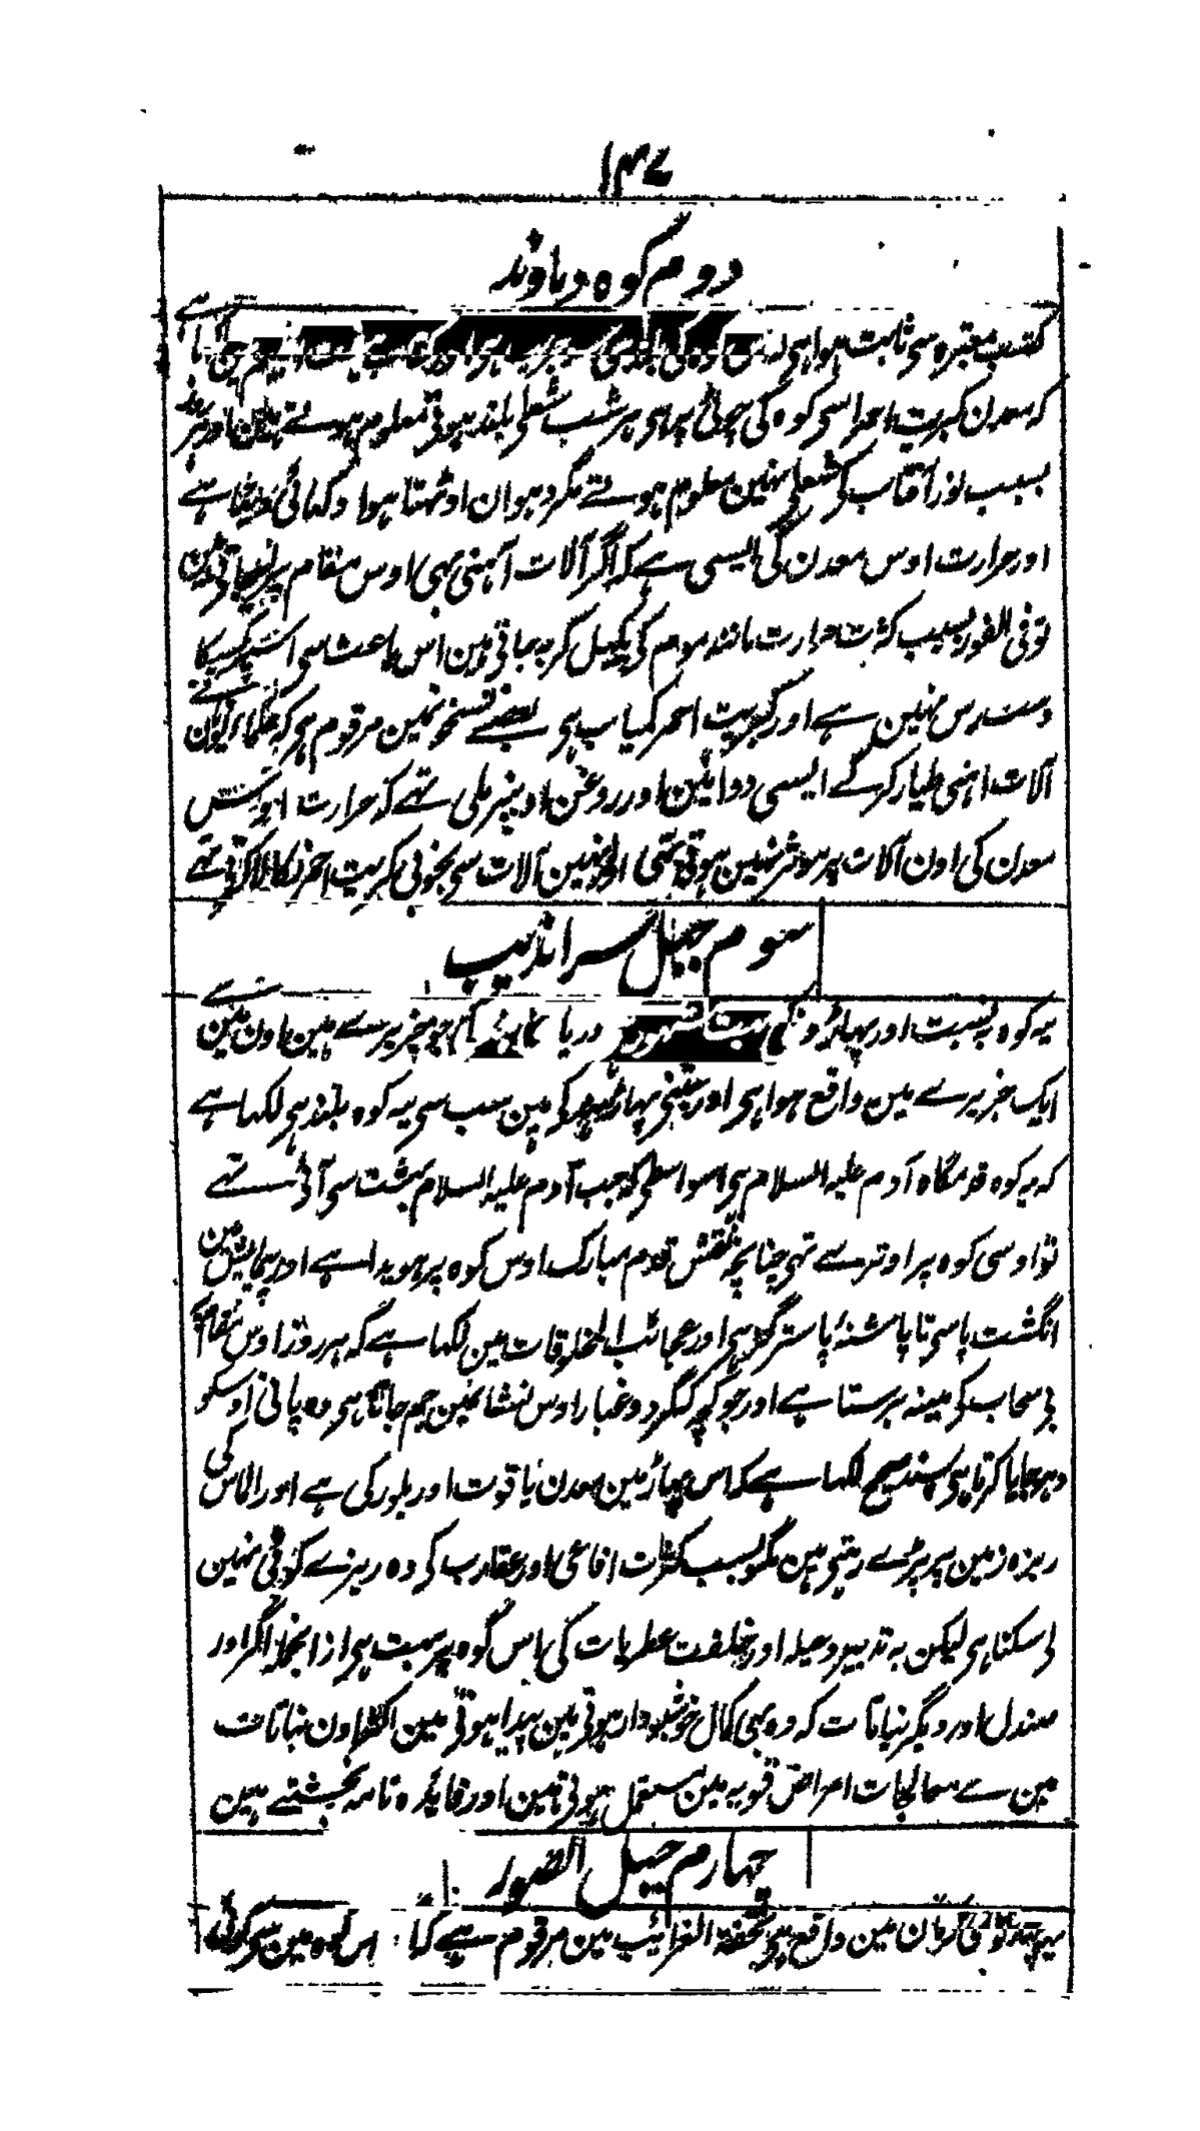 ۱۴۷
دوم کوہ دماوند
کتب معتبرہ سی ثابت ہوا ہی
کہ معدن کبریت احمر اسی کوہ کی چوٹی پر ہی ہر شب شعلی بلند ہوتی معلوم ہوتے ہین اور ہر روز
بسبب نور آفتاب کی شعلی نہین معلوم ہوتے مگر دہوان اوٹہتا ہوا دکہائی دیتا ہے
اور حرارت اوس معدن کی ایسی ہے کہ اگر آلات آہنی بہی اوس مقام پر لیجاتی ہین
تو فی الفور بسبب کثرت حرارت مانند موم کی پگہل کر بہ جاتی ہین اس باعث سی اسپر کسیکا
دست رس نہین ہے اور کبریت احمر کمیاب ہی بعضے نسخونمین مرقوم ہی کہ حکماء یونان نے
آلات اہنی طیار کر کے ایسی دوائین اور روغن اونپر ملی تہے کہ حرارت اوس
معدن کی اون آلات پر موثر نہین ہوتی تہی اور اونہین آلات سی بخوبی کبریت احمر نکالا کرتی تہے
سوم جبل سراندیب
یہ کوہ بہ نسبت اور پہاڑونکی بہت دریا جو جزیرے ہین اون مین
ایک جزیرے مین واقع ہوا ہی اور جتنی پہاڑ کی ہین سب سی یہ کوہ بلند ہی لکہا ہے
کہ یہ کوہ قدمگاہ آدم علیہ السلام ہی اسواسطی کہ جب آدم علیہ السلام بہشت سی آئی تہے
تو اوسی کوہ پر اوترے تہی چنانچہ نقش قدم مبارک اوس کوہ پر ہویدا ہے اور پیمایش مین
انگشت پا سی تا پاشنۂ پا ستر گز ہی اور عجائب المخلوقات مین لکہا ہے کہ ہر روز اوس مقام پر
بی سحاب کی مینہ برستا ہے اور جو کچہ گرد و غبار اوس نشانمین جم جاتا ہی وہ پانی اوسکو
دہو جایا کرتا ہی بسند صحیح لکہا ہے کہ اس پہاڑ مین معدن یاقوت اور بلور کی ہے اور الماس کی
ریزہ زمین پر پڑے رہتی ہین مگر بسبب کثرت افاعی اور عقارب کی وہ ریزے کوئی نہین
لی سکتا ہی لیکن بہ تدبیر و حیلہ اور خلقت عطریات کی اس کوہ پر بہت ہی ازانجملہ اگر اور
صندل اور دیگر نباتات کہ وہ بہی کمال خوشبودار ہوتی ہین پیدا ہوتی ہین اکثر اون نباتات
مین سے معالجات امراض قویہ مین مستعمل ہوتی ہین اور فایدہ تامہ بخشتے ہین
چہارم جبل الصور
یہ پہاڑ کرمان مین واقع ہی تحفۃ الغرائب مین مرقوم ہے کہ اس کوہ مین سی کوئی